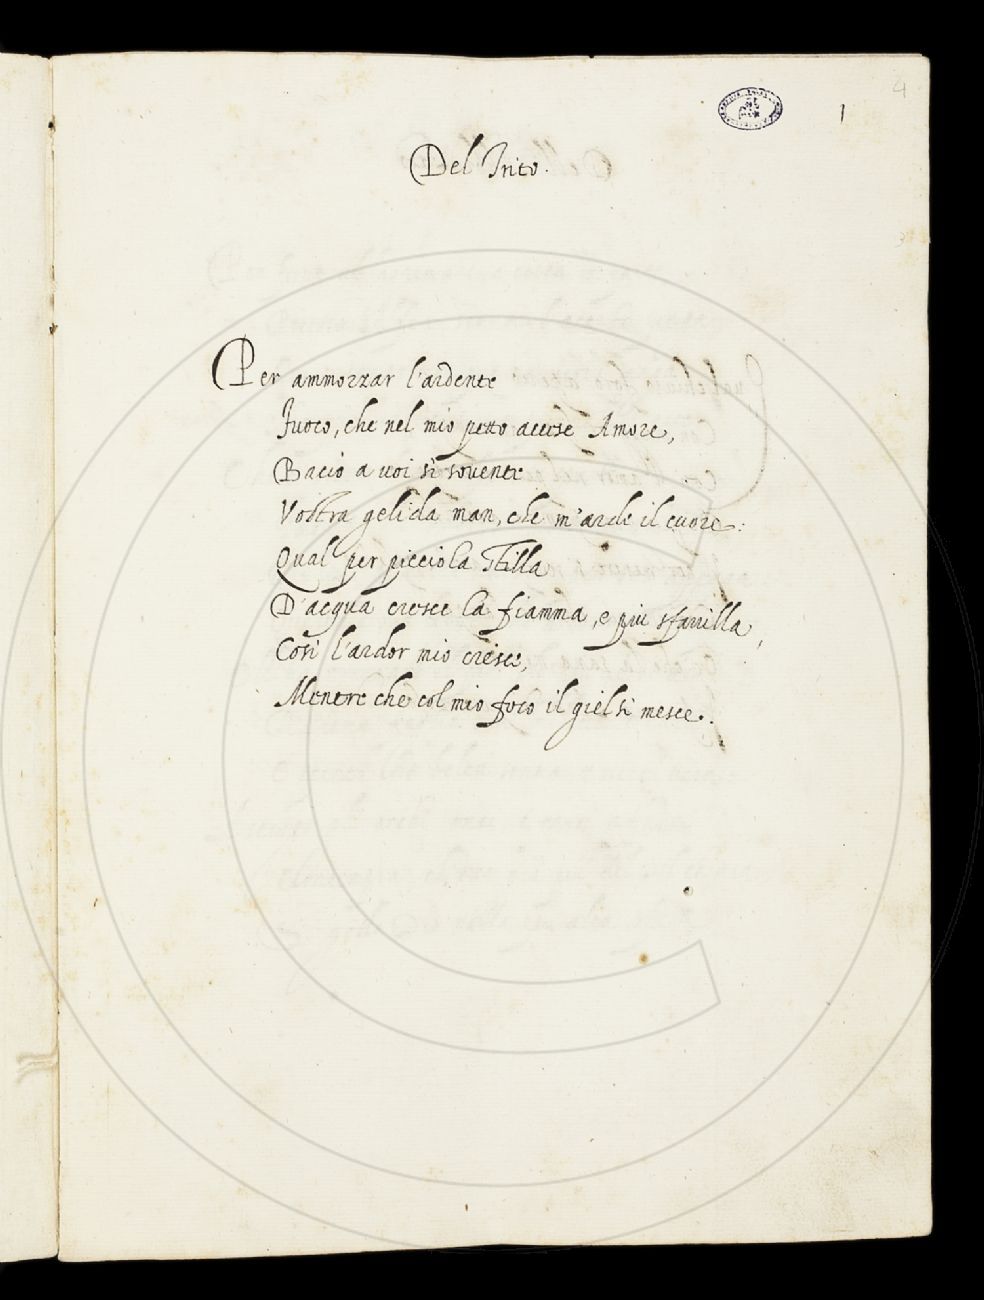 4
1
Del Trito.
Per ammorzar l'ardente
Fuoco, che nel mio petto accese Amore,
Bacio a uoi sì souente
Vostra gelida man, che m'arde il cuore:
Qual per picciola stilla
D'acqua cresce la fiamma, e piu sfauilla,
Così l'ardor mio cresce,
Mentre che col mio foco il giel si mesce.